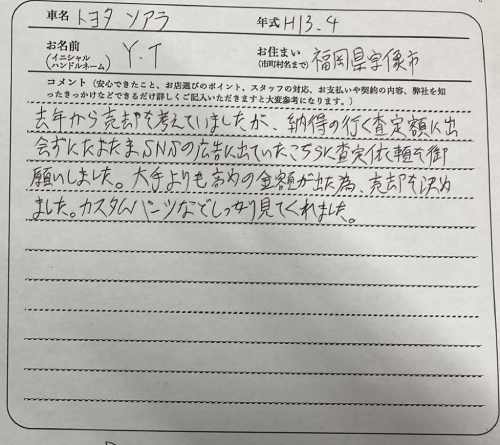 車名 トヨタ ソアラ 年式 H13.4
お名前 (イニシャル ハンドルネーム) Y.T お住まい (市町村名まで) 福岡県宇像市
コメント（安心できたこと、お店選びのポイント、スタッフの対応、お支払いや契約の内容、弊社を知
ったきっかけなどできるだけ詳しくご記入いただきますと大変参考になります。）
去年から売却を考えていましたが、納得の行く査定額に出
会ずにたまたまSNSの広告に出ていたこちらに査定依頼を御
願いしました。大手よりも高めの金額が出た為、売却を決め
ました。カスタムパーツなどしっかり見てくれました。